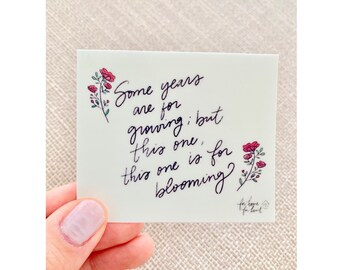 Some years
are for
growing; but
this one,
this one is for
blooming